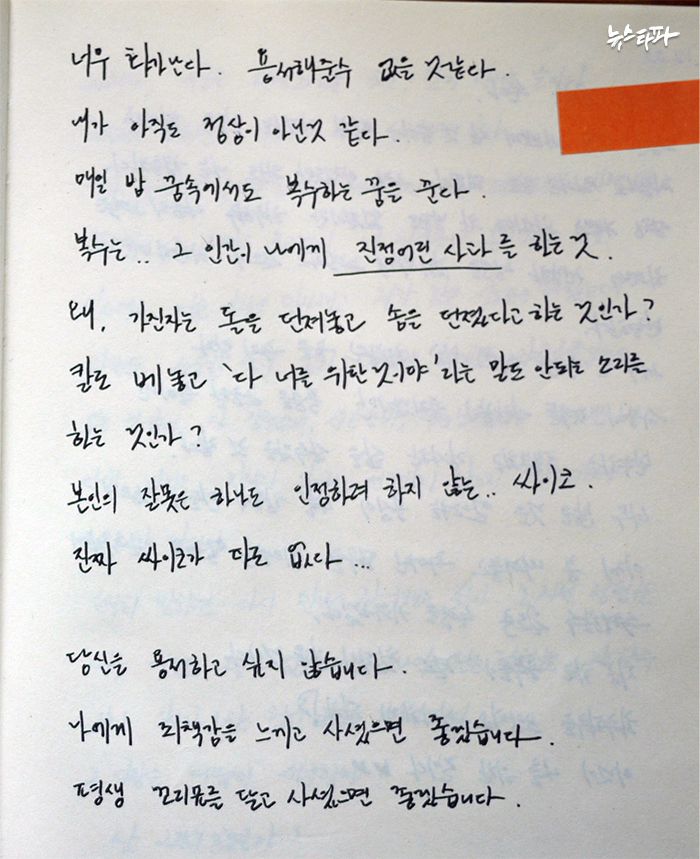 뉴스타파
너무 화가난다. 용서해줄수 없을 것같다.
내가 아직도 정상이 아닌것 같다.
매일 밤 꿈속에서도 복수하는 꿈을 꾼다.
복수는.. 그 인간이 나에게 진정어린 사과를 하는 것.
왜, 가진자는 돌을 던져놓고 솜을 던졌다고 하는 것인가?
칼로 베놓고 '다 너를 위한 것이야' 라는 말도 안되는 소리를
하는 것인가?
본인의 잘못은 하나도 인정하려 하지 않는.. 싸이코.
진짜 싸이코가 따로 없다...
당신을 용서하고 싶지 않습니다.
나에게 죄책감을 느끼고 사셨으면 좋겠습니다.
평생 꼬리표를 달고 사셨으면 좋겠습니다.